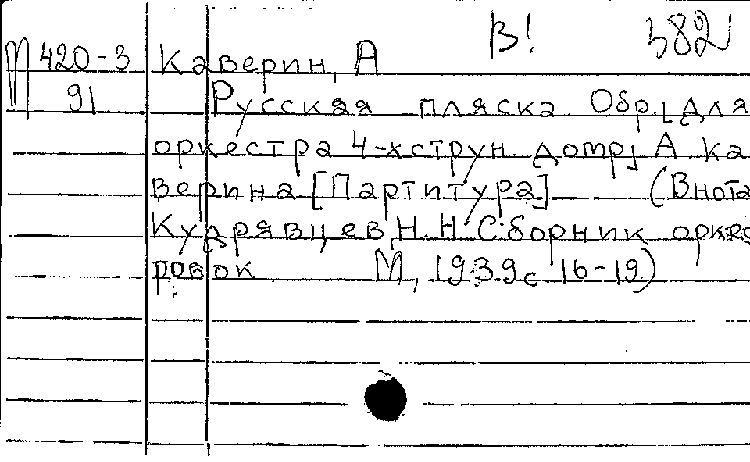 В! 382
М 420-3 Каверин, А
91 Русская пляска Обр[ для
оркестра 4-хструн. домр] А Ка
верина [Партитура] (В нота
Кудрявцев Н. Н. Сборник орке
ровок М, 1939 с 16-19)